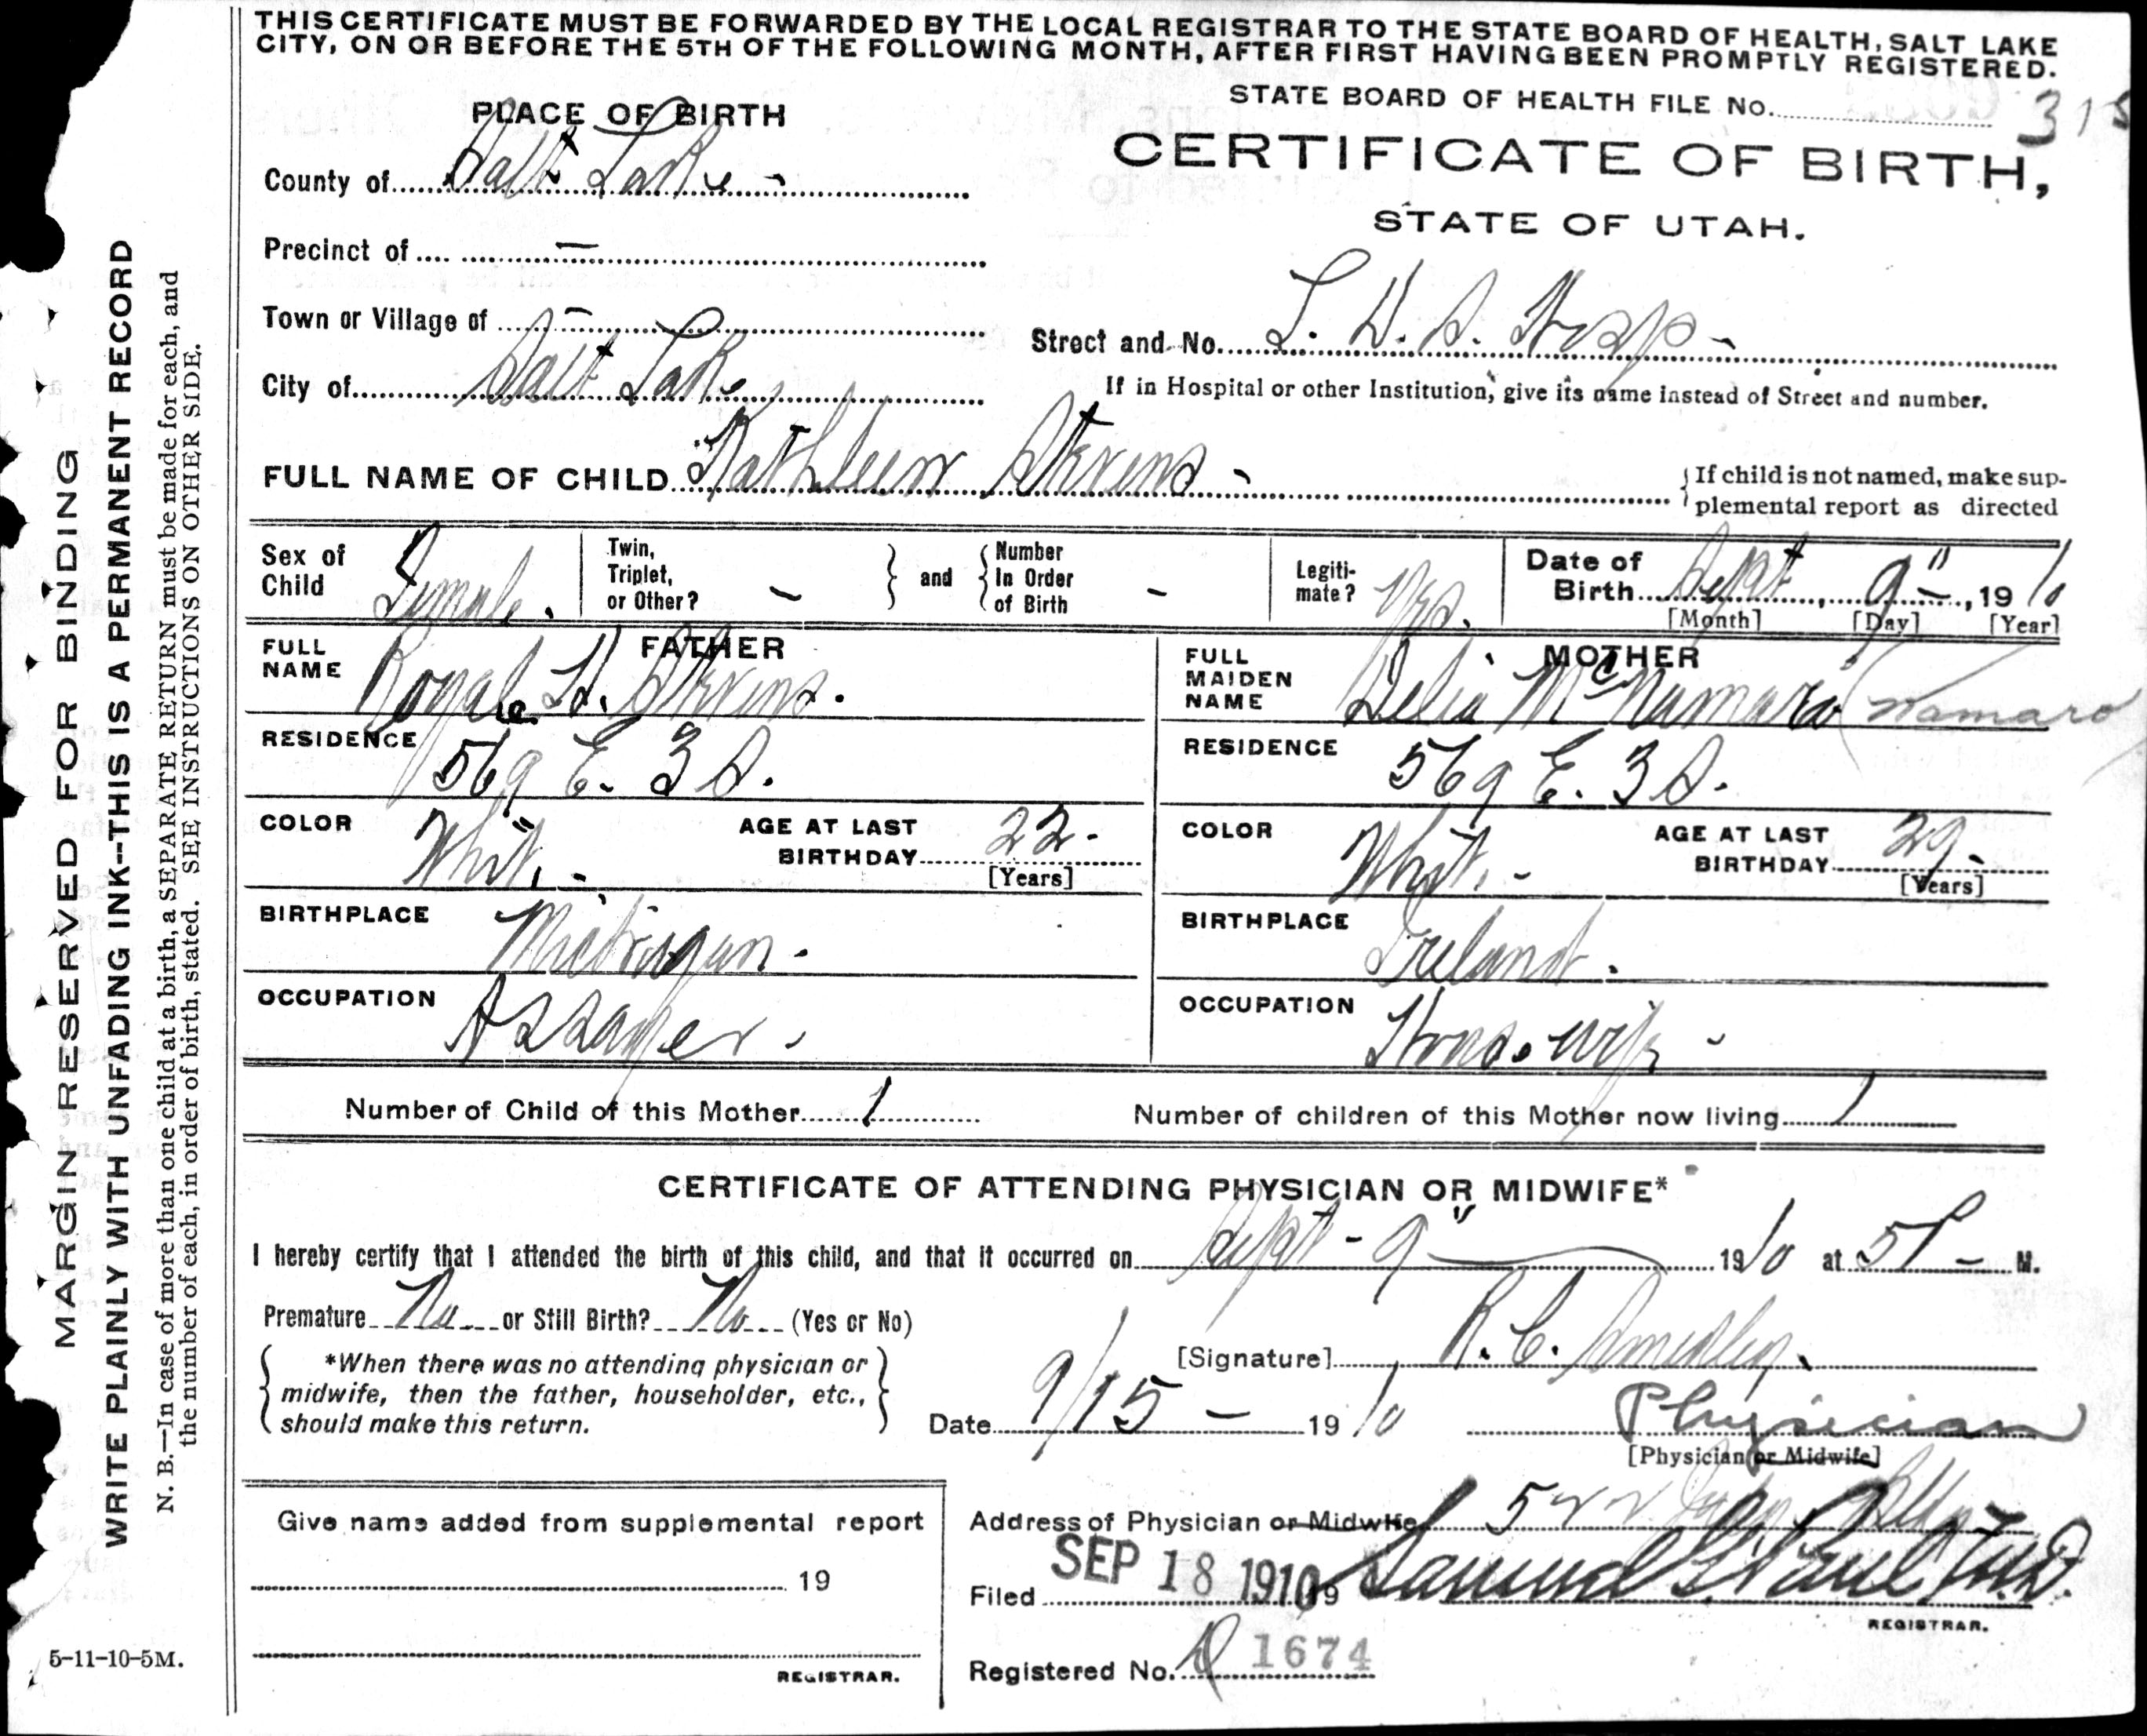 THIS CERTIFICATE MUST BE FORWARDED BY THE LOCAL REGISTRAR TO THE STATE BOARD OF HEALTH, SALT LAKE
CITY, ON OR BEFORE THE 5TH OF THE FOLLOWING MONTH, AFTER FIRST HAVING BEEN PROMPTLY REGISTERED.
STATE BOARD OF HEALTH FILE No. 315
PLACE OF BIRTH
CERTIFICATE OF BIRTH,
STATE OF UTAH.
County of Salt Lake -
Precinct of —
Town or Village of —
Street and No. L. D. S. Hosp -
City of Salt Lake
If in Hospital or other Institution, give its name instead of Street and number.
FULL NAME OF CHILD Kathleen Stevens -
If child is not named, make sup-
plemental report as directed
Sex of Child Female.
Twin, Triplet, or Other? -
and Number In Order of Birth -
Legiti-mate? Yes.
Date of Birth Sept 9", 1910
[Month] [Day] [Year]
FATHER
FULL NAME Royale H. Stevens.
RESIDENCE 569 E. 3 S.
COLOR White -
AGE AT LAST BIRTHDAY 22 -
[Years]
BIRTHPLACE Michigan -
OCCUPATION Assayer -
MOTHER
FULL MAIDEN NAME Delia McNamara
RESIDENCE 569 E. 3 S.
COLOR White -
AGE AT LAST BIRTHDAY 29 -
[Years]
BIRTHPLACE Ireland.
OCCUPATION Housewife -
Number of Child of this Mother 1
Number of children of this Mother now living 1
CERTIFICATE OF ATTENDING PHYSICIAN OR MIDWIFE*
I hereby certify that I attended the birth of this child, and that it occurred on Sept - 9" 1910 at 5 P - M.
Premature No or Still Birth? No (Yes or No)
*When there was no attending physician or
midwife, then the father, householder, etc.,
should make this return.
[Signature] R. C. Smedley.
Date 9/15 - 1910
Physician
[Physician or Midwife]
Give name added from supplemental report
19
REGISTRAR.
Address of Physician or Midwife 522 Bldg
Filed SEP 18 1910 19 Samuel G. Paul M.D.
REGISTRAR.
Registered No. 1674
MARGIN RESERVED FOR BINDING
WRITE PLAINLY WITH UNFADING INK--THIS IS A PERMANENT RECORD
N. B.—In case of more than one child at a birth, a SEPARATE RETURN must be made for each, and
the number of each, in order of birth, stated. SEE INSTRUCTIONS ON OTHER SIDE.
5-11-10-5M.